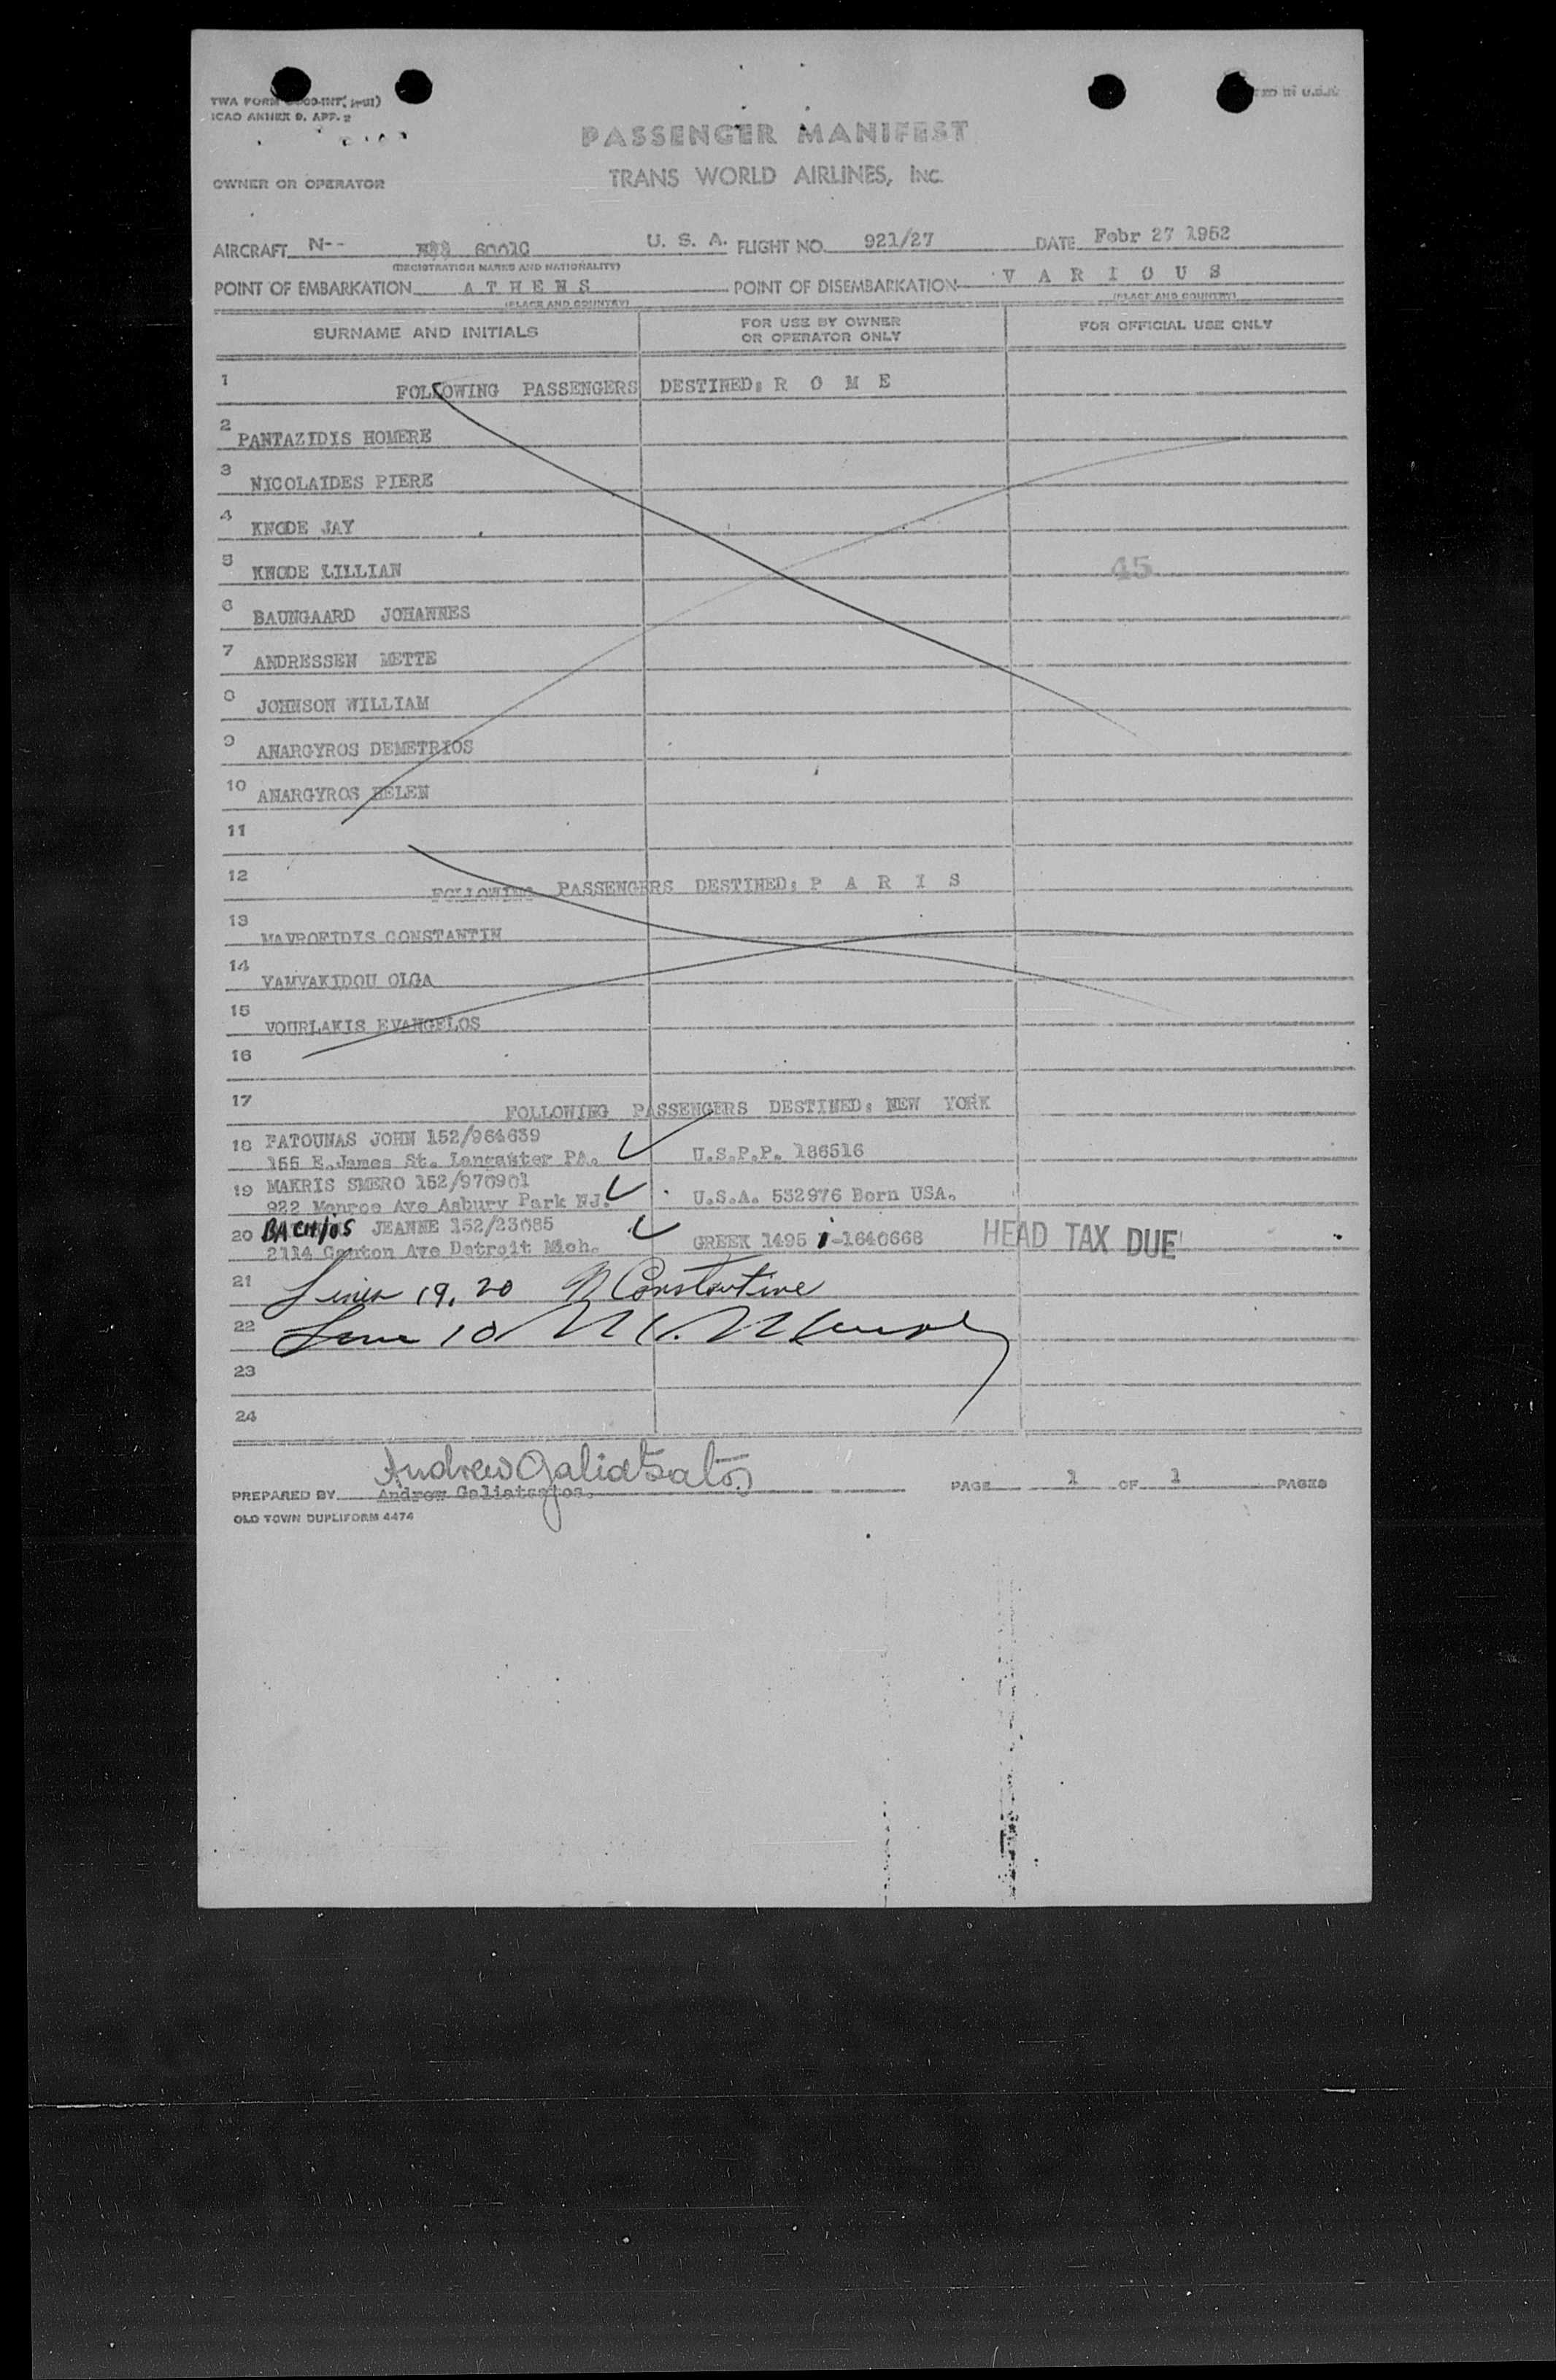 TWA FORM
ICAO ANNEX 9, APP. 2
PASSENGER MANIFEST
OWNER OR OPERATOR
TRANS WORLD AIRLINES, INC.
AIRCRAFT N-- 6001C U. S. A. FLIGHT NO. 921/27 DATE Febr 27 1952
(REGISTRATION MARKS AND NATIONALITY)
POINT OF EMBARKATION A T H E N S POINT OF DISEMBARKATION V A R I O U S
(PLACE AND COUNTRY) (PLACE AND COUNTRY)
SURNAME AND INITIALS FOR USE BY OWNER OR OPERATOR ONLY FOR OFFICIAL USE ONLY
1 FOLLOWING PASSENGERS DESTINED: R O M E
2 PANTAZIDIS HOMERE
3 NICOLAIDES PIERE
4 KNODE JAY
5 KNODE LILLIAN 45
6 BAUNGAARD JOHANNES
7 ANDRESSEN METTE
8 JOHNSON WILLIAM
9 ANARGYROS DEMETRIOS
10 ANARGYROS HELEN
11
12 FOLLOWING PASSENGERS DESTINED: P A R I S
13 MAVROFIDIS CONSTANTIN
14 VAMVAKIDOU OLGA
15 VOURLAKIS EVANGELOS
16
17 FOLLOWING PASSENGERS DESTINED: NEW YORK
18 FATOUNAS JOHN 152/964639
155 E.James St. Lancaster PA. U.S.P.P. 186516
19 MAKRIS SMERO 152/970901
922 Monroe Ave Asbury Park NJ. U.S.A. 532976 Born USA.
20 JEANNE 152/23085
2114 Canton Ave Detroit Mich. GREEK 1495 i-1640668 HEAD TAX DUE
21 Lines 19, 20 N Constantine
22
23
24
Andrew Galiatsatos
PREPARED BY Andrew Galiatsatos. PAGE 1 OF 1 PAGES
OLD TOWN DUPLIFORM 4474